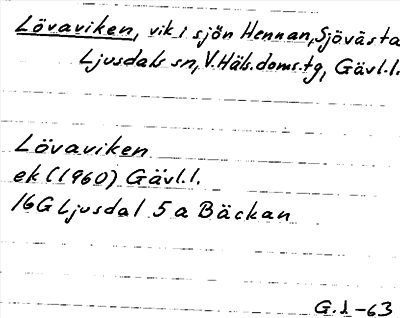 Lövaviken, vik i sjön Hennan, Sjövästa
Ljusdals sn, V. Häls. doms.tg, Gävl.l.
Lövaviken
ek (1960) Gävl.l.
16G Ljusdal 5 a Bäckan
G.J.-63